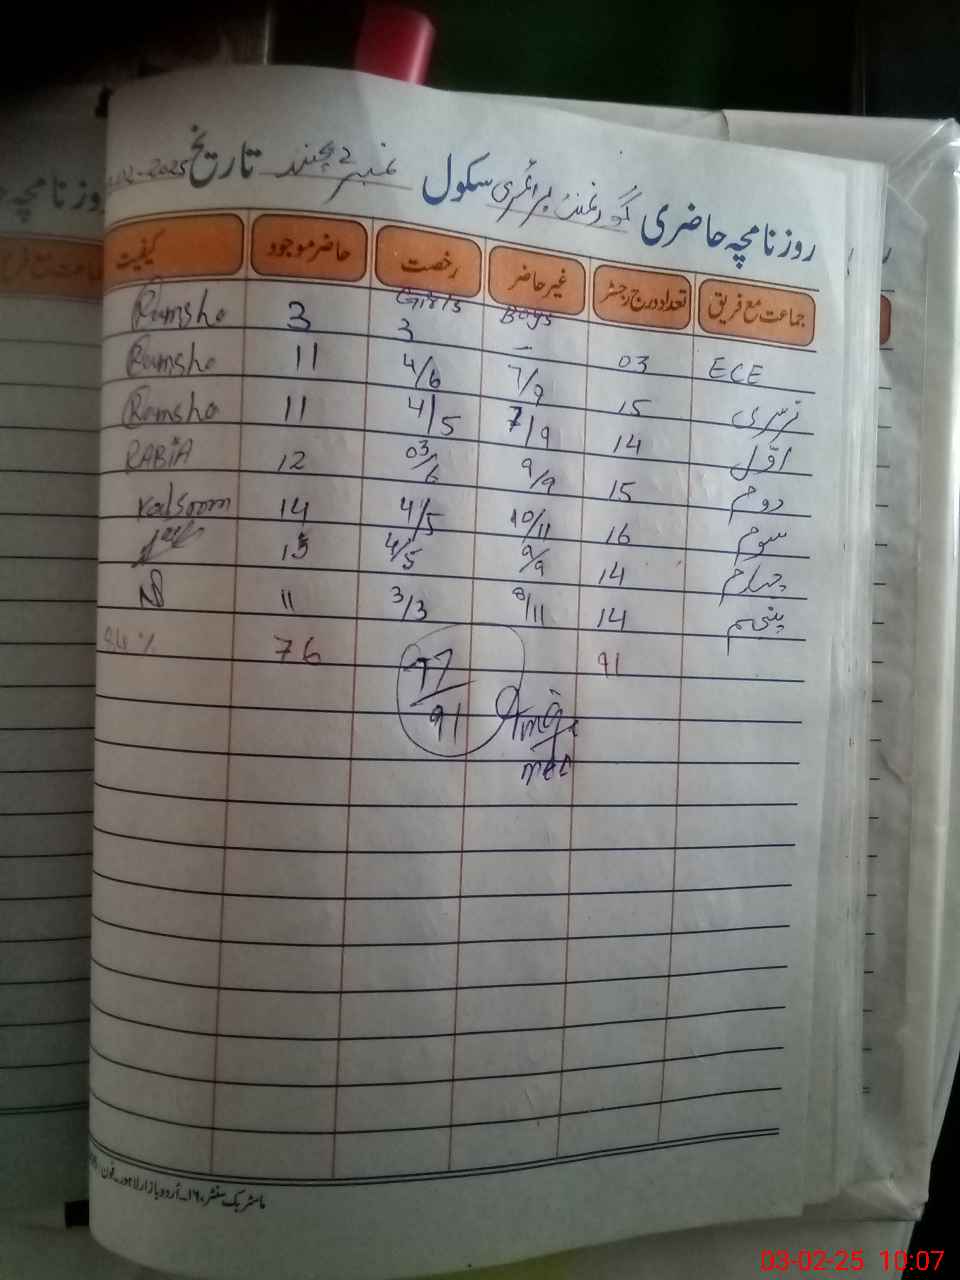 روزنامچہ حاضری گورنمنٹ پرائمری سکول نمبر 2 تاریخ 2025
جماعت مع فریق تعداد درج رجسٹر غیر حاضر رخصت حاضر موجود کیفیت
Boys Girls
ECE 03 – 3 3 Ramsha
نرسری 15 7/9 4/6 11 Ramsha
اوّل 14 7/9 4/5 11 Ramsha
دوم 15 9/9 03/6 12 RABIA
سوم 16 10/11 4/5 14 Kalsoom
چہارم 14 9/9 4/5 13
پنجم 14 8/11 3/3 11
91 76
77/91
ماسٹر بک سنٹر، ۱۶۔اُردو بازار لاہور۔فون:
03-02-25 10:07